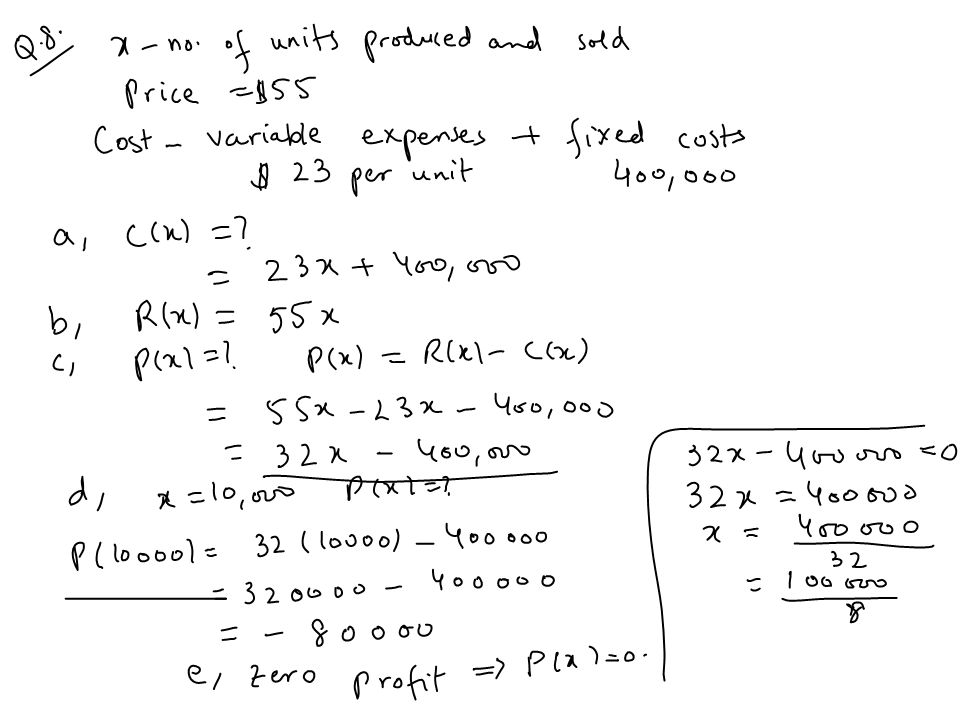 Q.8. x – no. of units produced and sold
Price = $55
Cost – variable expenses + fixed costs
$ 23 per unit 400,000
a, C(x) = ?
= 23x + 400,000
b, R(x) = 55x
c, P(x) = ? P(x) = R(x) – C(x)
= 55x – 23x – 400,000
= 32x – 400,000
d, x = 10,000 P(x) = ?
P(10000) = 32 (10000) – 400000
= 320000 – 400000
= – 80000
e, zero profit ⇒ P(x) = 0.
32x – 400000 = 0
32x = 400000
x = 400000
32
= 100000
8